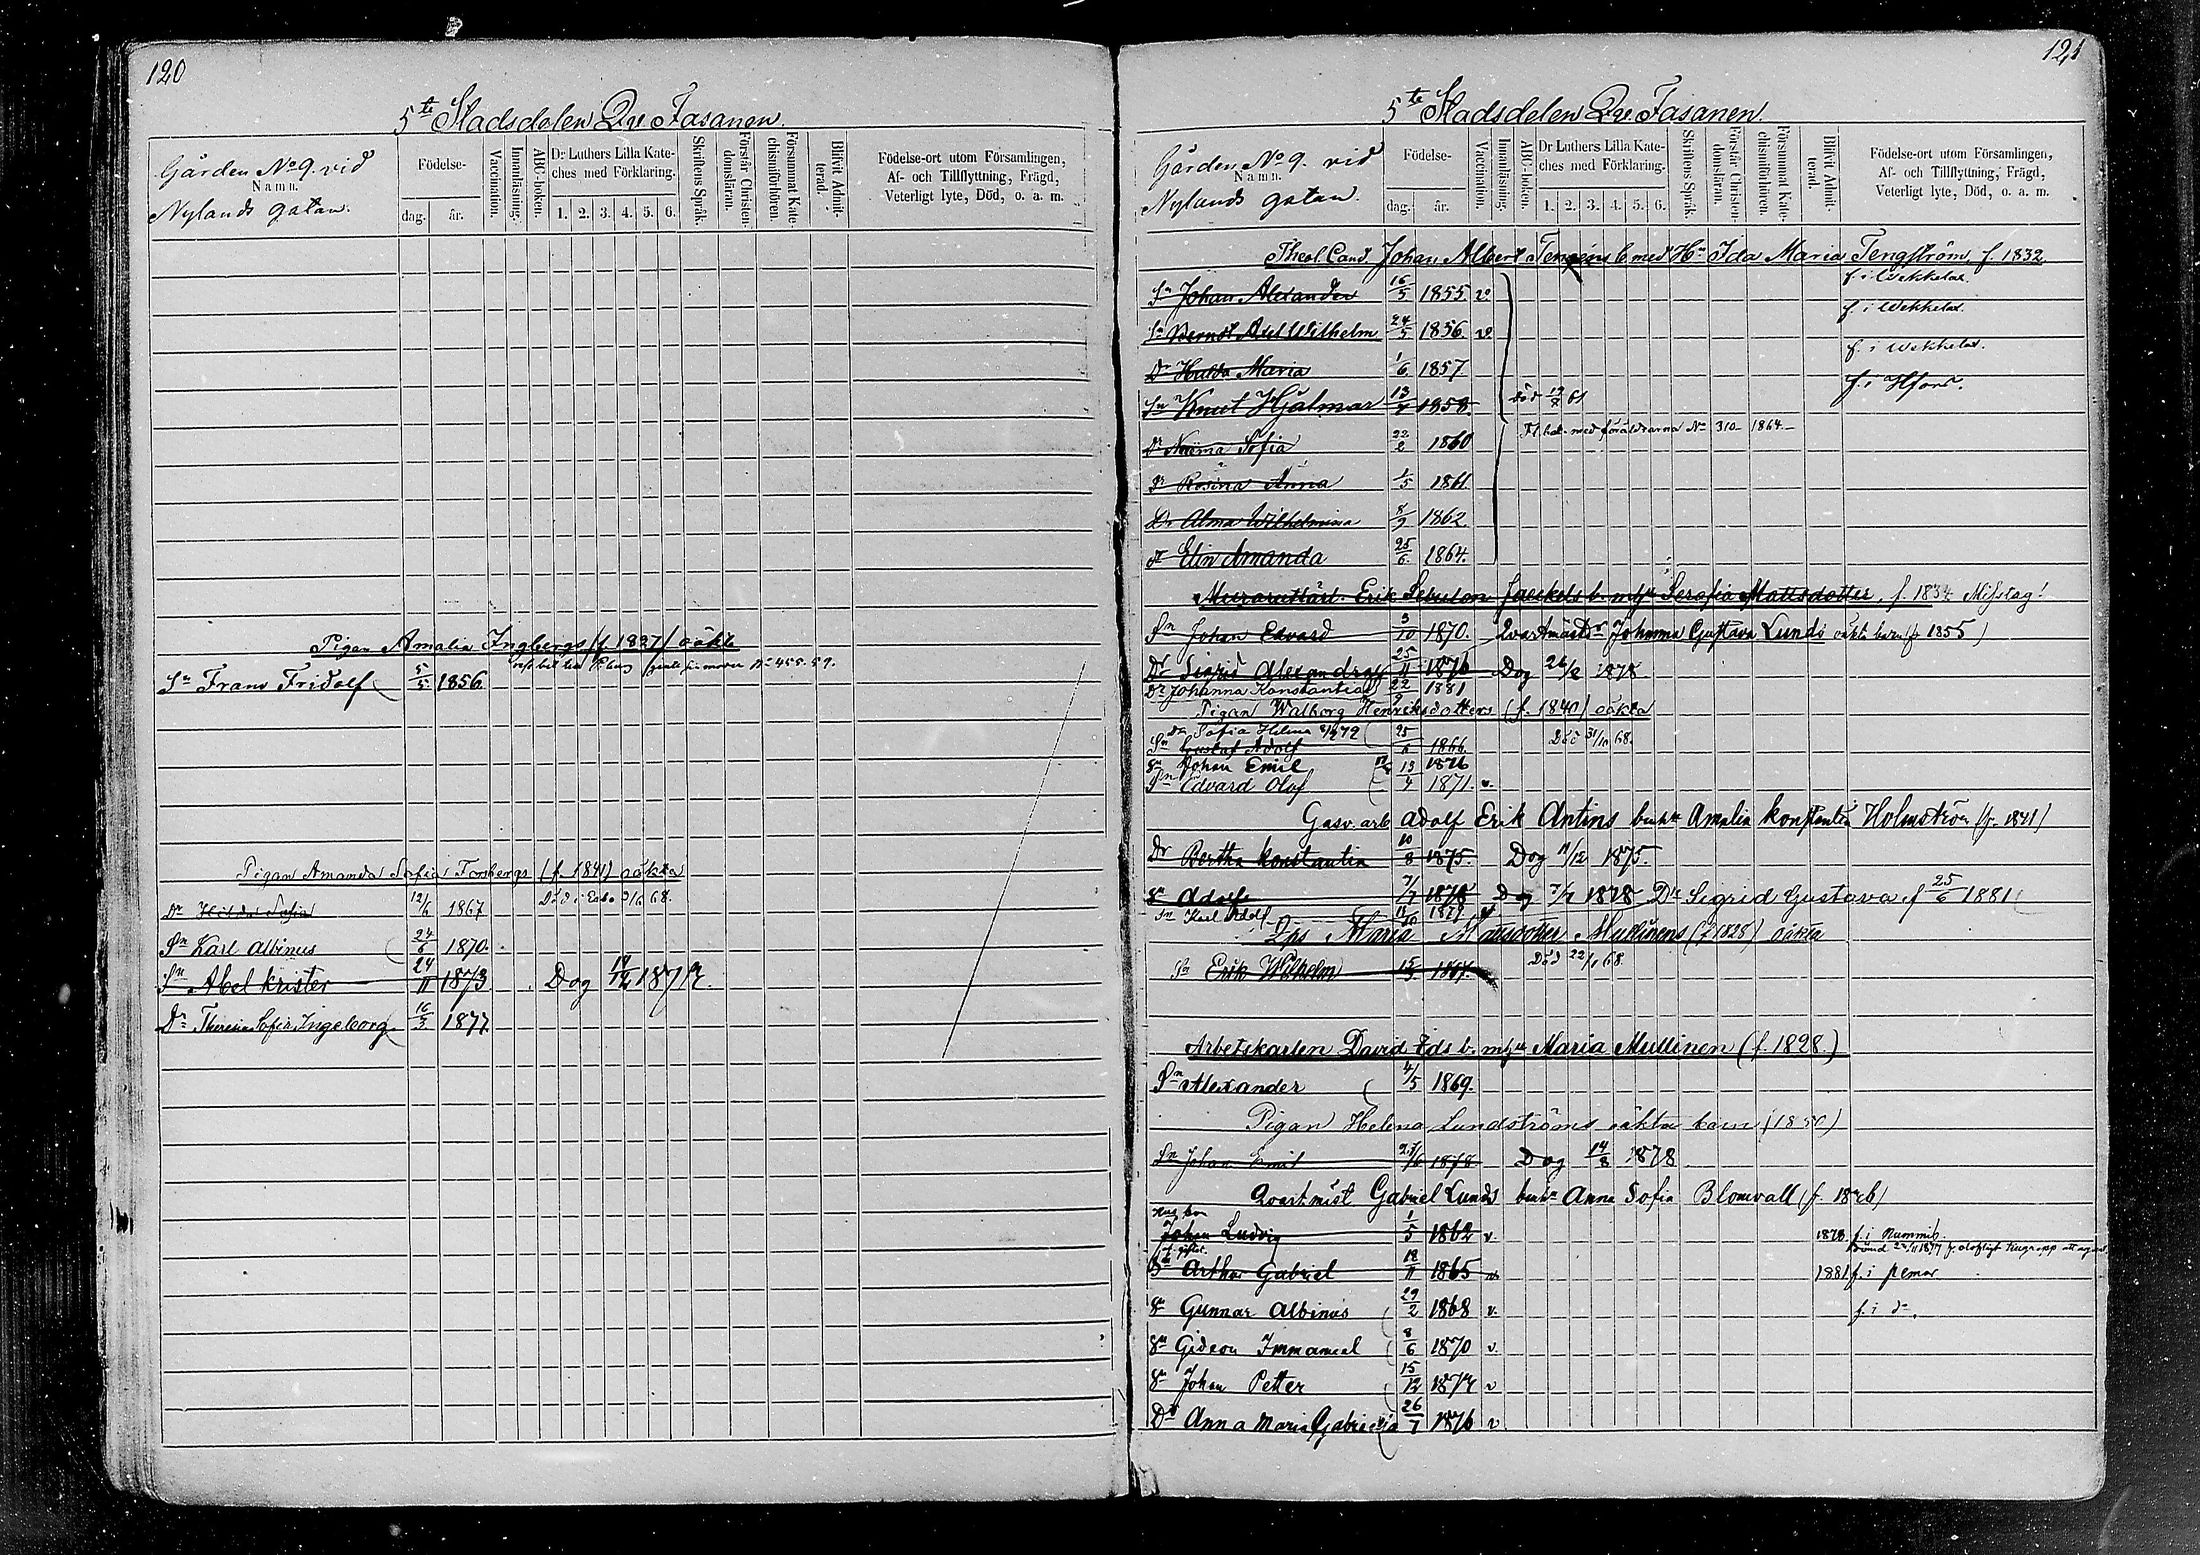 120
5te Stadsdelen Qv. Fasanen.
Gården No 9. vid
Namn.
Nylands gatan.
Födelse-
dag. år.
Vaccination.
Innanläsning.
ABC-boken.
Dr Luthers Lilla Kate-
ches med Förklaring.
1. 2. 3. 4. 5. 6.
Skriftens Språk.
Förstår Christen-
domsläran.
Försummat Kate-
chismiförhören.
Blifvit Admit-
terad.
Födelse-ort utom Församlingen,
Af- och Tillflyttning, Frägd,
Veterligt lyte, Död, o. a. m.
Pigan Amalia Ingbergs (f. 1827) oäkta
No 455. 59.
Sn Frans Fridolf 5/5 1856
Pigan Amanda Sofia Forsbergs (f. 1841) oäkta
Dr Hilda Sofia 12/6 1867 Död i Esbo 68.
Sn Karl Albinus 24/6 1870.
Sn Abel Krister 24/11 1873 Dog
Dr Theresia Sofia Ingeborg 16/3 1877
121
5te Stadsdelen Qv. Fasanen.
Gården No 9. vid
Namn.
Nylands gatan.
Födelse-
dag. år.
Vaccination.
Innanläsning.
ABC-boken.
Dr Luthers Lilla Kate-
ches med Förklaring.
1. 2. 3. 4. 5. 6.
Skriftens Språk.
Förstår Christen-
domsläran.
Försummat Kate-
chismiförhören.
Blifvit Admit-
terad.
Födelse-ort utom Församlingen,
Af- och Tillflyttning, Frägd,
Veterligt lyte, Död, o. a. m.
Theol. Cand. Johan Albert Tengéns b. med Hu Ida Maria Tengström, f. 1832
Sn Johan Alexander 16/5 1855 v. f. i Wekkelax.
Sn Berndt Axel Wilhelm 24/5 1856. v. f. i Wekkelax.
Dr Hulda Maria 1/6 1857 f. i Wekkelax.
Sn Knut Hjalmar 13/7 1858. död 61 f. i Hfors.
med föräldrarna No 310 - 1864.
Dr Naëma Sofia 22/2 1860
Dr Rosina Anna 1/5 1861.
Dr Alma Wilhelmina 8/9 1862
Dr Elin Amanda 25/6. 1864.
Erik Jaeckels b. mhu Serafia Mattsdotter, f. 1834 Misstag!
Sn Johan Edvard 3/10 1870. Qvartmästr Johanna Gustava Lunds oäkta barn (f. 1855)
Dr Sigrid Alexandra 25/11 1876 Dog 26/2 1878
Dr Johanna Konstantia 22/9 1881
Pigan Walborg Henriksdotters (f. 1840) oäkta
Dr Sofia Helena 79
Sn Gustaf Adolf 25/6 1866. Död 31/10 68.
Sn Johan Emil 1876
Sn Edvard Olof 13/4 1871. v.
Gasv. arb Adolf Erik Antins b. mhu Amalia Konstantia Holmström (f. 1841)
Dr Bertha Konstantia 10/8 1875. Dog 11/12 1875.
Sn Adolf 7/7 1878 Dog 7/7 1878 Dr Sigrid Gustava f 25/6 1881
Sn Karl Adolf 1879
Maria Mattsdotter Mullinens (f. 1828) oäkta
Sn Erik Wilhelm 15/3 1867. Död 22/1 68.
Arbetskarlen David Eds b. mhu Maria Mullinen (f. 1828.)
Sn Alexander 4/5 1869.
Pigan Helena Lundströms oäkta barn (1850)
Sn Johan Emil 1878 Dog 14/8 1878
Qvartmäst Gabriel Lunds b. mhu Anna Sofia Blomvall (f. 1826)
Johan Ludvig 1/5 1862 v. 1878 f. i Nummis
Sn Arthur Gabriel 18/11 1865 1881 f. i Pemar
Sn Gunnar Albinus 29/2 1868 v. f. i d-.
Sn Gideon Immanuel 8/6 1870 v.
Sn Johan Petter 15/12 v
Dr Anna Maria Gabriella 26/7 1876 v